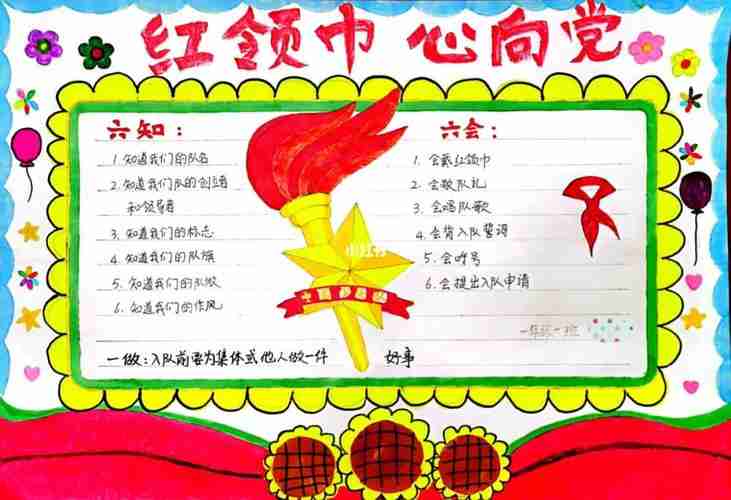 红领巾 心向党
六知：
1. 知道我们的队名
2. 知道我们队的创立者
和领导者
3. 知道我们的标志
4. 知道我们的队旗
5. 知道我们的
6. 知道我们的作风
小红书
中国少先队
六会：
1. 会戴红领巾
2. 会敬队礼
3. 会唱队歌
4. 会背入队誓词
5. 会呼号
6. 会提出入队申请
一年级一班
一做：入队前要为集体或他人做一件 好事